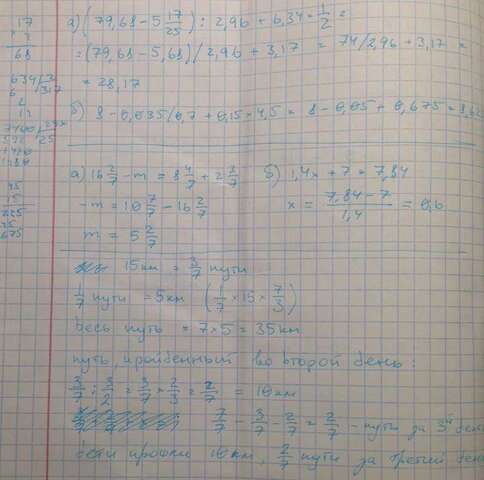 17
×4
68
а) (79,68 - 5 17/25) : 2,96 + 6,34 × 1/2 =
= (79,68 - 5,68) / 2,96 + 3,17 = 74/2,96 + 3,17 =
= 28,17
634 /2
6 317
б) 8 - 0,035/0,7 + 0,15 × 4,5 = 8 - 0,05 + 0,675 = 8,62
7400
592 25
1480
1480
45
15
225
45
675
а) 16 2/7 - m = 8 4/7 + 2 3/7
-m = 10 7/7 - 16 2/7
m = 5 2/7
б) 1,4x + 7 = 7,84
x = (7,84 - 7)/1,4 = 0,6
15км = 3/7 пути
1/7 пути = 5км (1/7 × 15 × 7/3)
весь путь = 7 × 5 = 35км
путь, пройденный во второй день:
3/7 : 3/2 = 3/7 × 2/3 = 2/7 = 10км
7/7 - 3/7 - 2/7 = 2/7 - пути за 3й день
дети прошли 10км, 2/7 пути за третий день